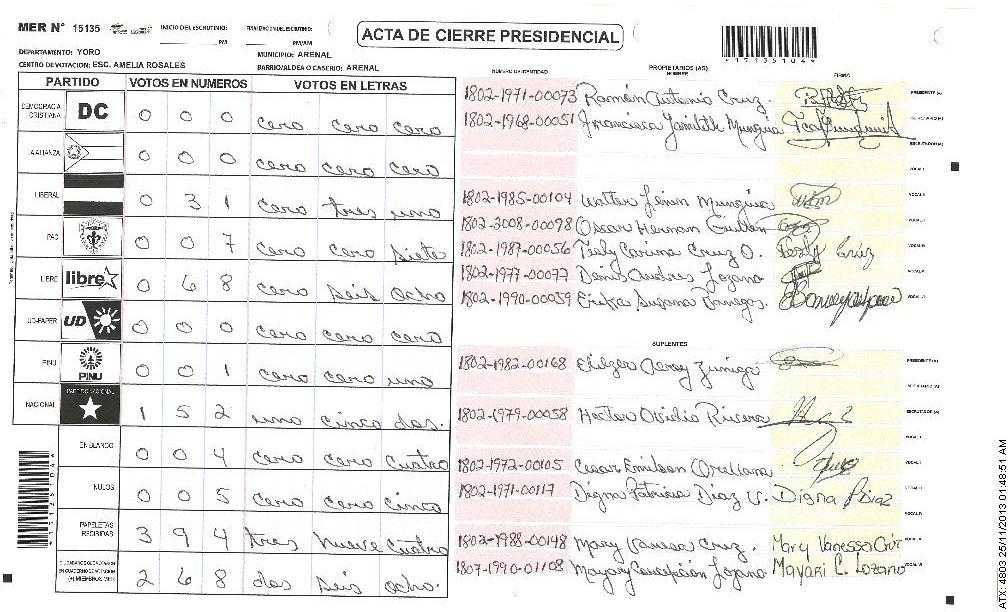 MER N° 15135 INICIO DEL ESCRUTINIO: FINALIZACION DEL ESCRUTINIO:
PM PM/AM
ACTA DE CIERRE PRESIDENCIAL
*1713S104*
DEPARTAMENTO: YORO MUNICIPIO: ARENAL
CENTRO DE VOTACION: ESC. AMELIA ROSALES BARRIO/ALDEA O CASERIO: ARENAL
PARTIDO VOTOS EN NUMEROS VOTOS EN LETRAS
DEMOCRACIA CRISTIANA DC 0 0 0 cero cero cero
LA ALIANZA 0 0 0 cero cero cero
LIBERAL 0 3 1 cero tres uno
PAC 0 0 7 cero cero siete
LIBRE libre 0 6 8 cero seis ocho
UD-FAPER UD 0 0 0 cero cero cero
PINU PINU 0 0 1 cero cero uno
NACIONAL PARTIDO NACIONAL 1 5 2 uno cinco dos.
EN BLANCO 0 0 4 cero cero cuatro
NULOS 0 0 5 cero cero cinco
PAPELETAS RECIBIDAS 3 9 4 tres nueve cuatro
(+) MIEMBROS MER 2 6 8 dos seis ocho.
NUMERO DE IDENTIDAD PROPIETARIOS (AS) NOMBRE FIRMA
1802-1971-00073 Ramón Antonio Cruz. PRESIDENTE (A)
1802-1968-00051 Francisca Yamileth Munguia SECRETARIO (A)
ESCRUTADOR (A)
VOCAL I
1802-1985-00104 Walter Lenin Munguia VOCAL II
1802-2008-00098 Oscar Herman Guillen VOCAL III
1802-1987-00056 Tesly Carina Cruz O. Tesly Cruz VOCAL IV
1802-1977-00077 Denis Andres Lozano VOCAL V
1802-1990-00059 Erika Susana Banegas.
SUPLENTES
1802-1982-00168 Eliezer Zuniga PRESIDENTE (A)
SECRETARIO (A)
1802-1979-00058 Hector Ovidio Rivera ESCRUTADOR (A)
VOCAL I
1802-1972-00105 Cesar Emilson Orellana VOCAL II
1802-1971-00117 Digna Patricia Diaz V. Digna P Diaz VOCAL III
VOCAL IV
1802-1988-00148 Mary Vanesa Cruz. Mary Vanessa Cruz
1807-1990-01108 Mayary Concepción Lozano Mayari C. Lozano
ATX: 4803 25/11/2013 01:48:51 AM